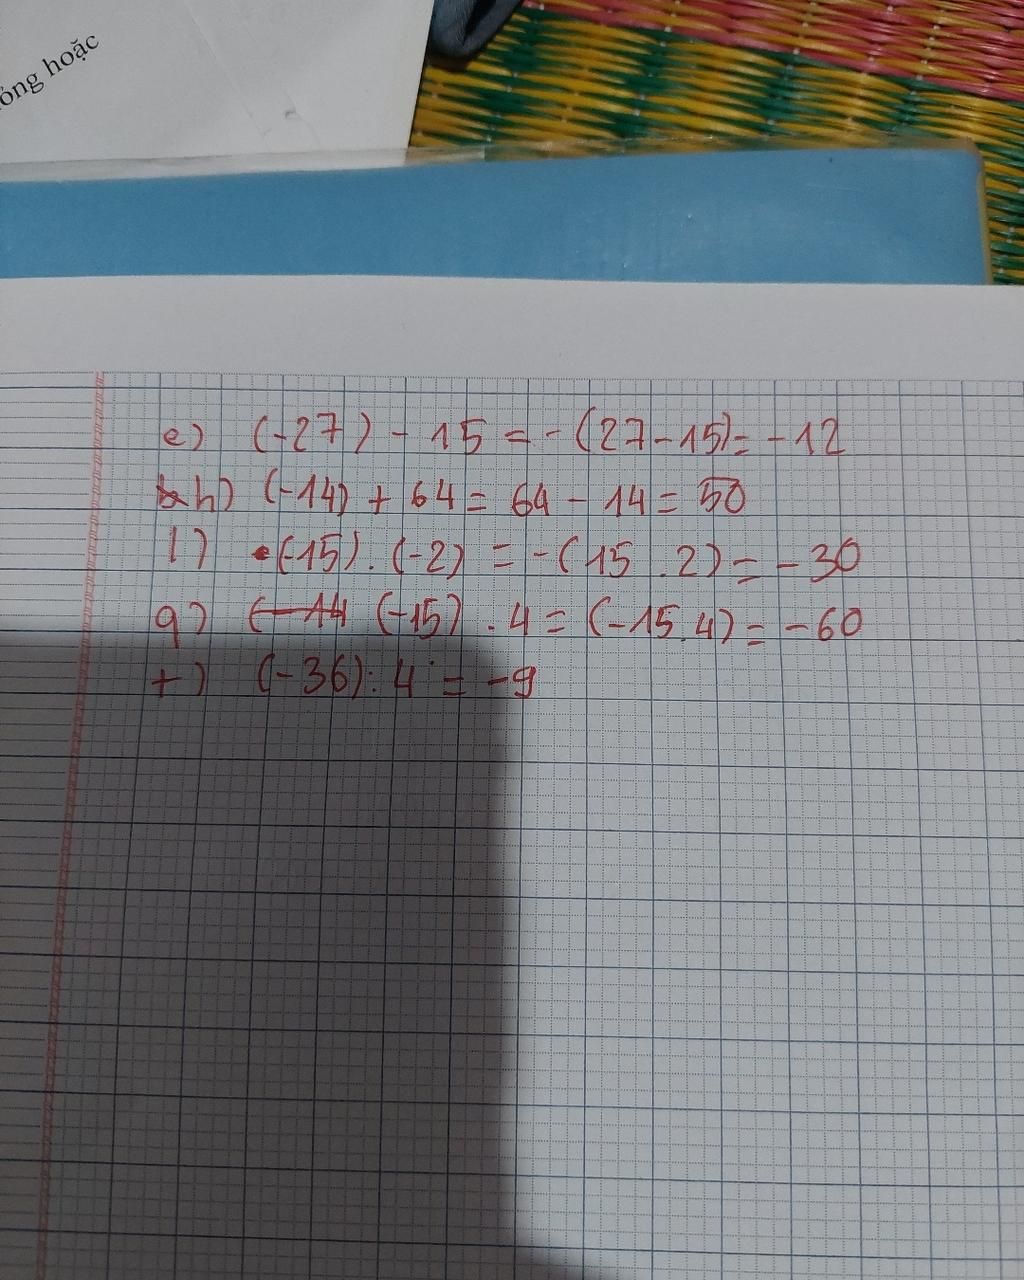 ỏng hoặc
e) (-27) - 15 = -(27-15) = -12
h) (-14) + 64 = 64 - 14 = 50
l) (-15) . (-2) = -(15 . 2) = -30
q) (-14 (-15) . 4 = (-15.4) = -60
t) (-36) : 4 = -9